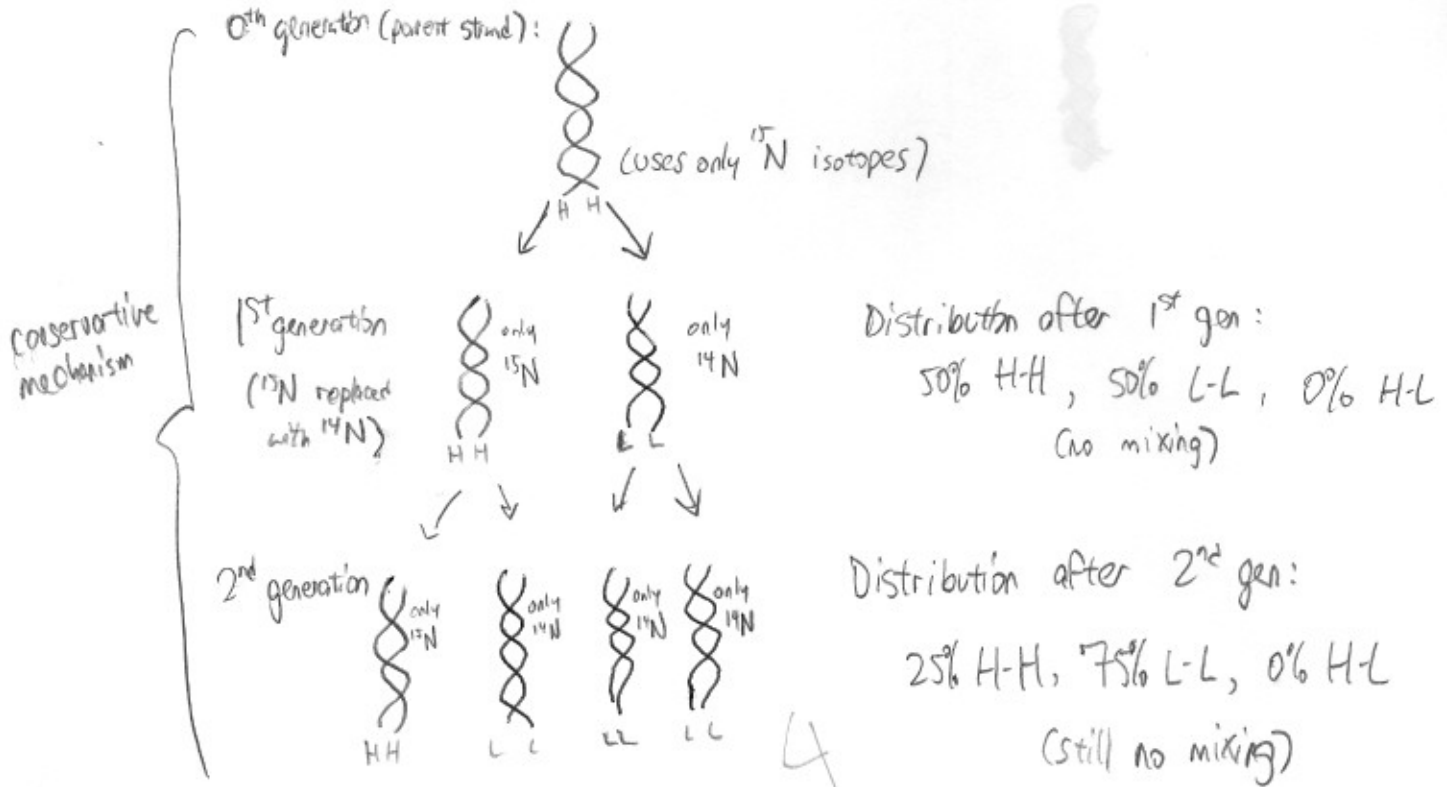 0th generation (parent strand):
(uses only 15N isotopes)
H H
conservative
mechanism
1st generation
(15N replaced
with 14N)
only
15N
H H
only
14N
L L
Distribution after 1st gen:
50% H-H, 50% L-L, 0% H-L
(no mixing)
2nd generation
only
15N
HH
only
14N
L L
only
14N
LL
only
14N
L L
Distribution after 2nd gen:
25% H-H, 75% L-L, 0% H-L
(still no mixing)
4